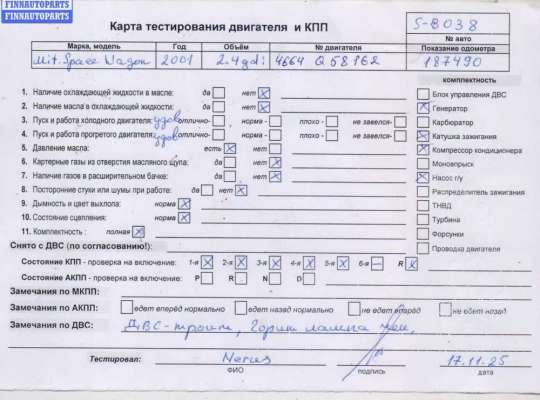 FINNAUTOPARTS
FINNAUTOPARTS
Карта тестирования двигателя и КПП
S-8038
№ авто
Марка, модель Год Объём № двигателя Показание одометра
Mit. Space Wagon 2001 2.4gdi 4G64 QS8162 187490
комплектность
1. Наличие охлаждающей жидкости в масле: да нет X
2. Наличие масла в охлаждающей жидкости: да нет X
3. Пуск и работа холодного двигателя: удов отлично- норма - плохо - не завелся-
4. Пуск и работа прогретого двигателя: удов отлично- норма - плохо - не завелся-
5. Давление масла: есть X нет
6. Картерные газы из отверстия масляного щупа: да нет X
7. Наличие газов в расширительном бачке: да нет X
8. Посторонние стуки или шумы при работе: да нет X
9. Дымность и цвет выхлопа: норма X
10. Состояние сцепления: норма X
11. Комплектность : полная X
Блок управления ДВС
Генератор
Карбюратор
Катушка зажигания
Компрессор кондиционера
Моновпрыск
Насос г/у
Распределитель зажигания
ТНВД
Турбина
Форсунки
Проводка двигателя
Снято с ДВС (по согласованию!):
Состояние КПП - проверка на включение: 1-я X 2-я X 3-я X 4-я X 5-я X 6-я — R X
Состояние АКПП - проверка на включение: P R N D
Замечания по МКПП:
Замечания по АКПП: едет вперёд нормально едет назад нормально не едет вперёд не едет назад
Замечания по ДВС: ДВС-троит, Горит лампа чек.
Тестировал: 17.11.25
ФИО подпись дата